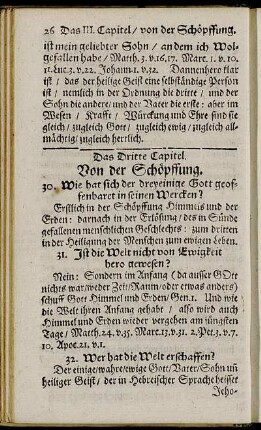 26 Das III. Capitel / von der Schöpffung.
ist mein geliebter Sohn / an dem ich Wol-
gefallen habe / Matth. 3. v. 16. 17. Marc. 1. v. 10.
11. Luc. 3. v. 22. Johann. 1. v. 32. Dannenhero klar
ist / das der heilige Geist eine selbständige Person
ist / nemlich in der Ordnung die dritte / und der
Sohn die andere / und der Vater die erste: aber im
Wesen / Krafft / Würckung und Ehre sind sie
gleich / zugleich Gott / zugleich ewig / zugleich all-
mächtig / zugleich herrlich.
Das Dritte Capitel.
Von der Schöpffung.
30. Wie hat sich der dreyeinige Gott geof-
fenbaret in seinen Wercken?
Erstlich in der Schöpffung Himmels und der
Erden: darnach in der Erlösung / des in Sünde
gefallenen menschlichen Geschlechts: zum dritten
in der Heiligung der Menschen zum ewigen Leben.
31. Ist die Welt nicht von Ewigkeit
hero gewesen?
Nein: Sondern im Anfang (da ausser GOtt
nichts war / weder Zeit / Raum / oder etwas anders)
schuff Gott Himmel und Erden / Gen. 1. Und wie
die Welt ihren Anfang gehabt / also wird auch
Himmel und Erden wieder vergehen am jüngsten
Tage / Matth. 24. v. 35. Marc. 13. v. 31. 2. Pet. 3. v. 7.
10. Apoc. 21. v. 1.
32. Wer hat die Welt erschaffen?
Der einige / wahre / ewige Gott / Vater / Sohn uñ
heiliger Geist / der in Hebreischer Sprache heisset
Jeho-